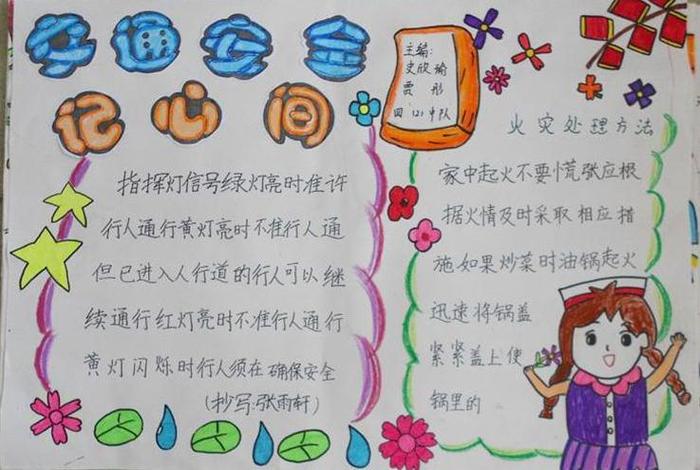 交通安全
记心间
指挥灯信号绿灯亮时准许
行人通行黄灯亮时不准行人通
但已进入人行道的行人可以继
续通行红灯亮时不准行人通行
黄灯闪烁时行人须在确保安全
(抄写:张雨轩)
主编:
史欣瑜
贾彤
四.121中队
火灾处理方法
家中起火不要慌张应根
据火情及时采取相应措
施如果炒菜时油锅起火
迅速将锅盖
紧紧盖上使
锅里的